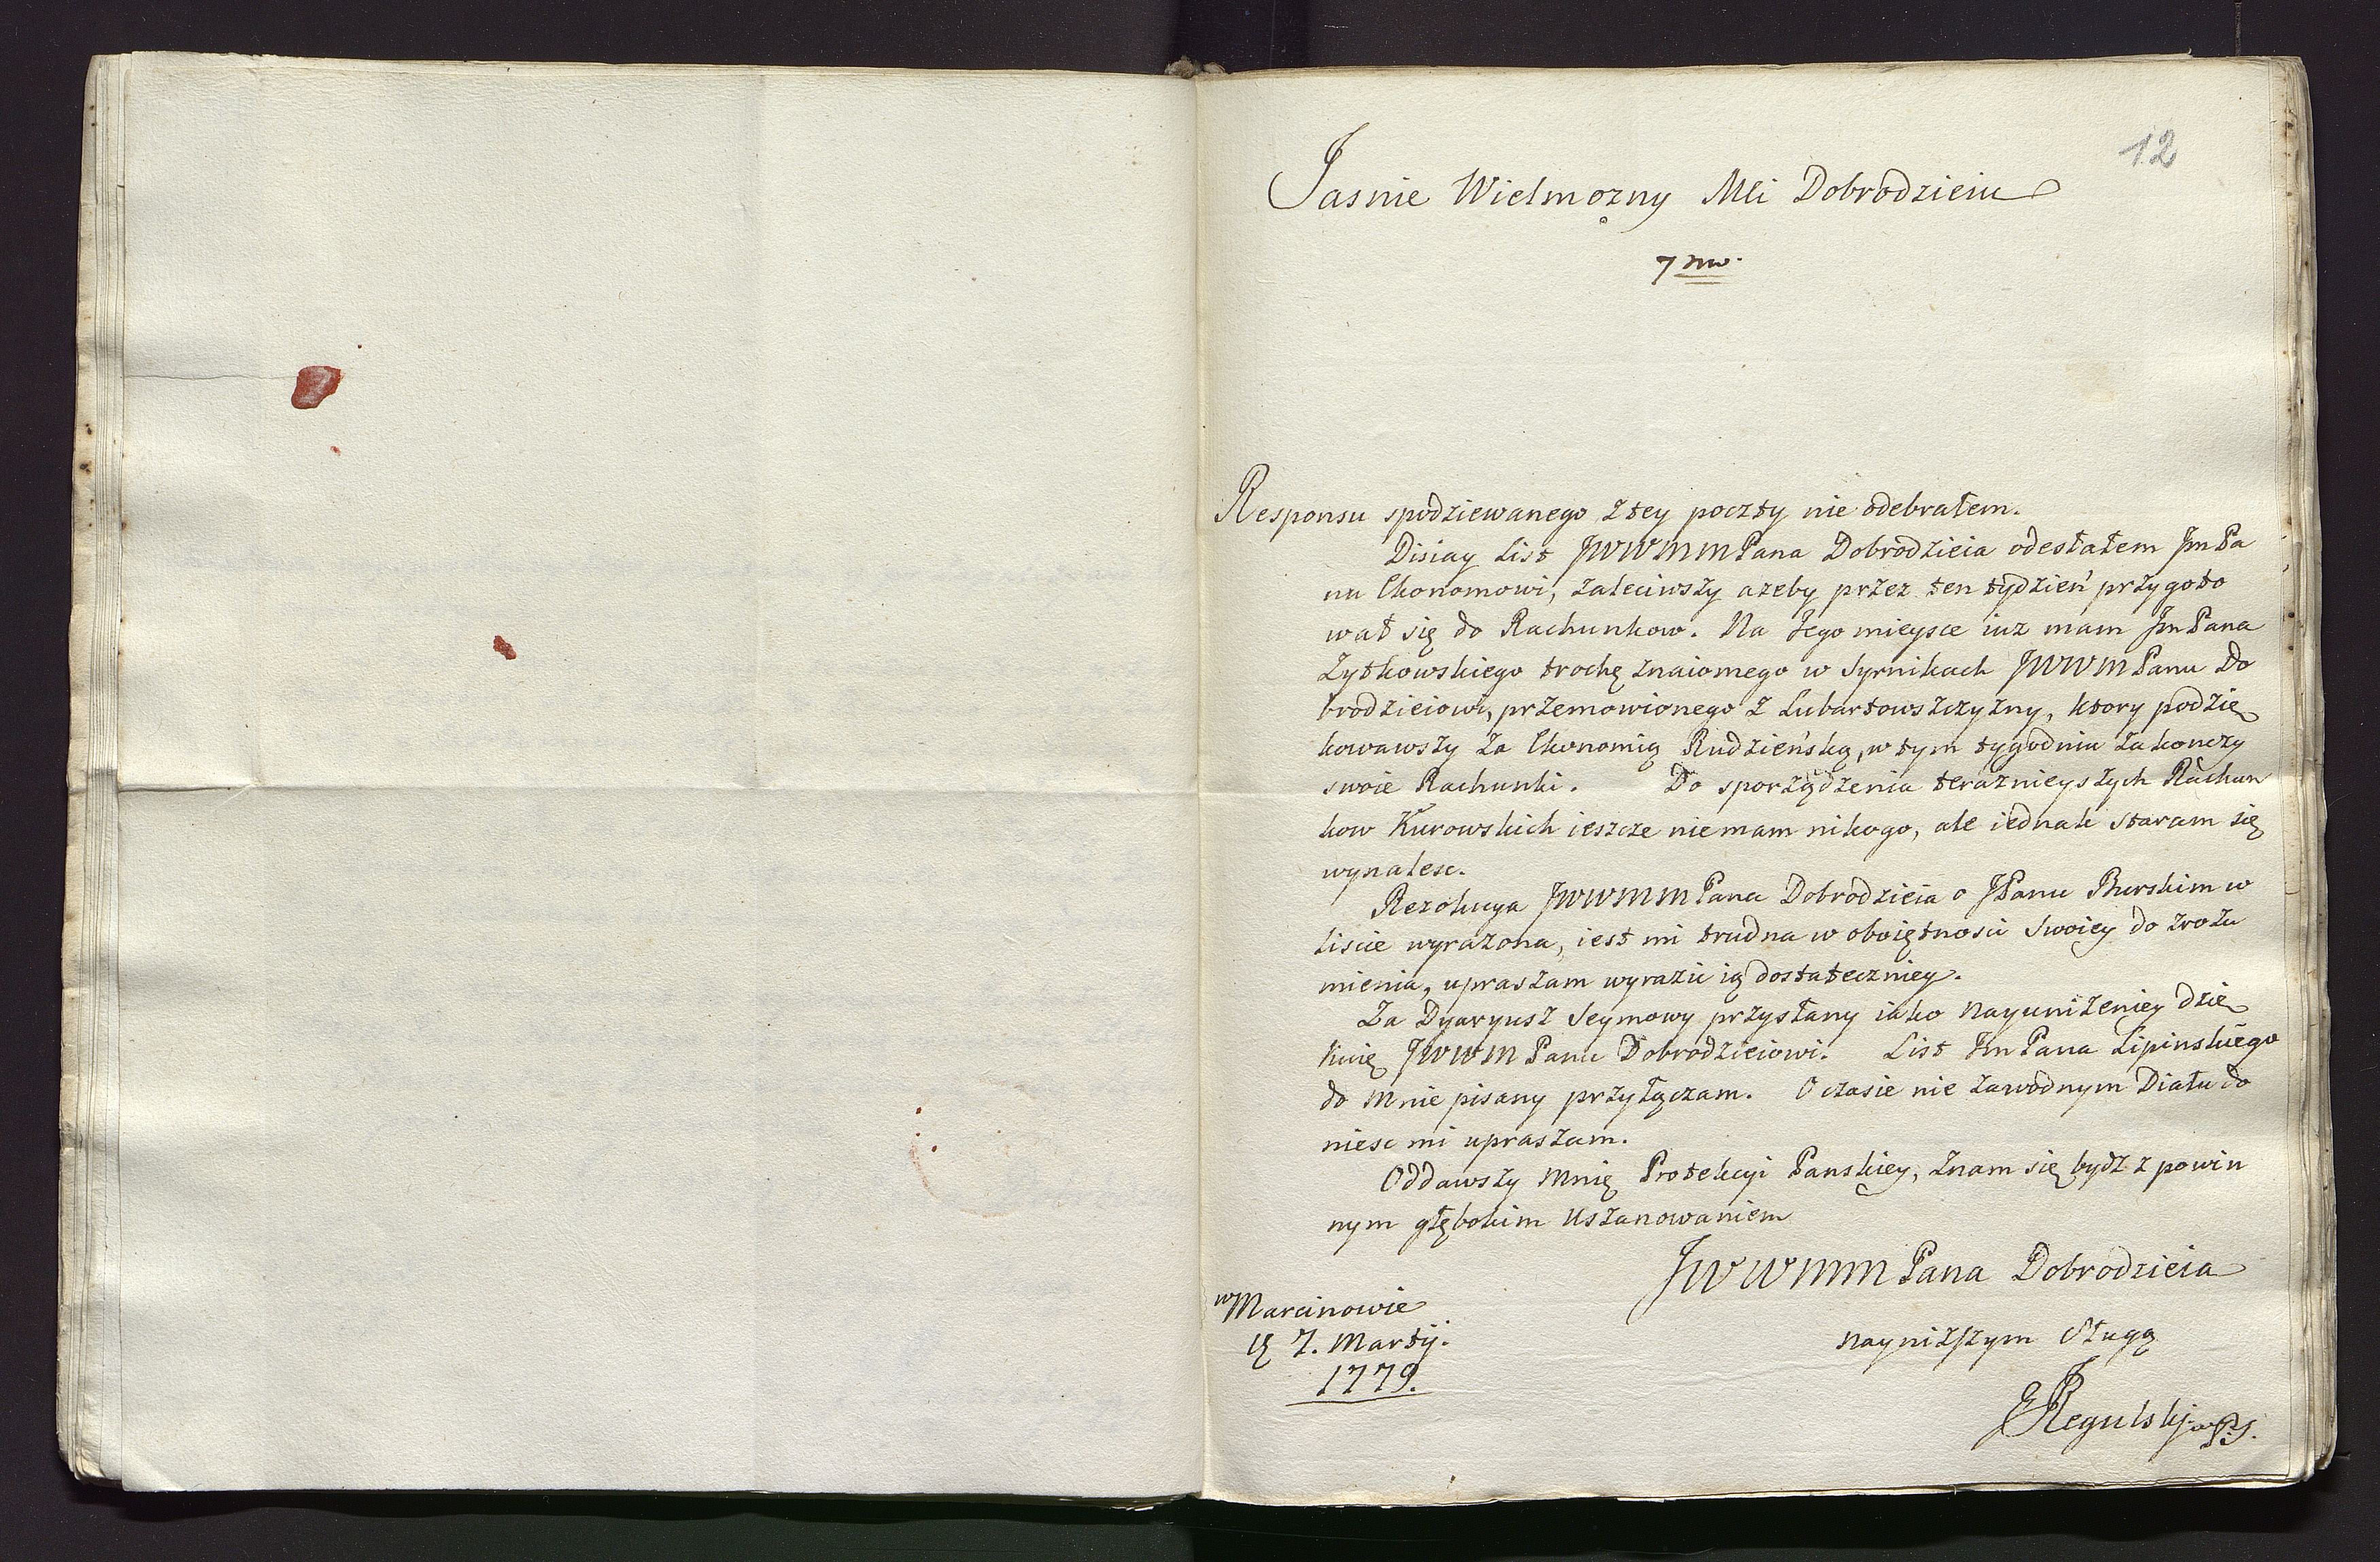 12
Jasnie Wielmozny Mci Dobrodzieiu
7mo.
Responsu spodziewanego z tey poczty nie odebrałem.
Disiay List JWWMMPana Dobrodzieia odesłałem JmPa
nu Ekonomowi, zaleciwszy azeby przez ten tydzień przygoto
wał się do Rachunkow. Na Jego mieysce iuz mam JmPana
Zytkowskiego trochę znaiomego w Syrnikach JWWMPanu Do
brodzieiowi, przemowionego z Lubartowszczyzny, ktory podzię
kowawszy za Ekonomią Rudzieńską, w tym tygodniu zakonczy
swoie Rachunki. Do sporządzenia teraznieyszych Rachun
kow Kurowskich ieszcze nie mam nikogo, ale iednak staram się
wynalesc.
Rezolucya JWWMMPana Dobrodzieia o JPanu Burskim w
liscie wyrazona, iest mi trudna w oboiętnosci Swoiey do zrozu
mienia, upraszam wyrazic ią dostateczniey.
Za Dyaryusz Seymowy przysłany iako nayunizeniey dzię
kuię JWWMPanu Dobrodzieiowi. List JmPana Lipinskiego
do mnie pisany przyłączam. O czasie nie zawodnym Działu do
niesc mi upraszam.
Oddawszy mnię Protekcyi Panskiey, znam się bydz z powin
nym głębokim Uszanowaniem
JWWMMPana Dobrodzieia
w Marcinowie
7. Martij.
1779.
nayniższym Sługą
Regulskj